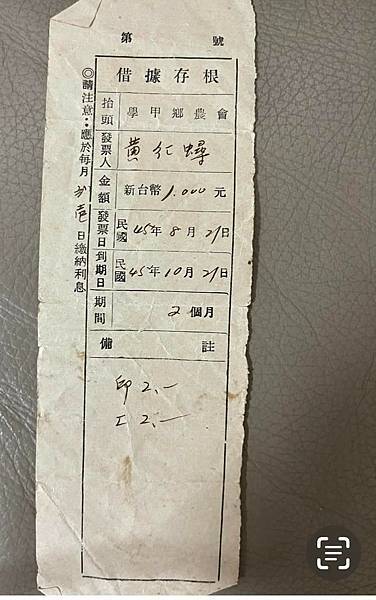 第 號
借據存根
抬頭 學甲鄉農會
發票人 黃仁蟳
金額 新台幣1.000元
發票日 民國45年8月21日
到期日 民國45年10月21日
期間 2個月
備註
印 2.—
工 2.—
◎請注意：應於每月 弍壱 日繳納利息